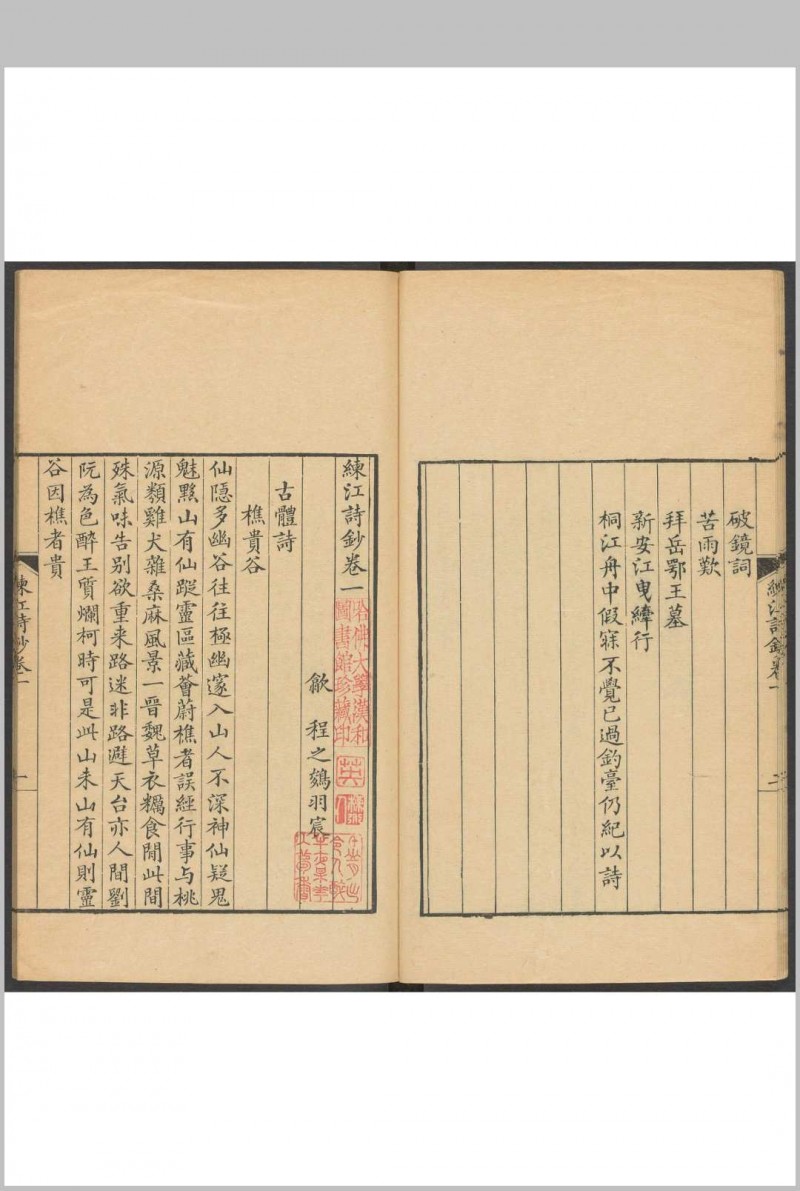 破鏡詞
苦雨歎
拜岳鄂王墓
新安江曳縴行
桐江舟中假寐不覺已過釣臺仍紀以詩
練江詩鈔卷一
二
練江詩鈔卷一
哈佛大學漢和
圖書館珍藏印
歙　程之鵕羽宸
古體詩
樵貴谷
仙隱多幽谷往往極幽邃入山人不深神仙疑鬼
魅黟山有仙蹤靈區藏薈蔚樵者誤經行事与桃
源類雞犬雜桑麻風景一晋魏草衣糲食閒此間
殊氣味告别欲重来路迷非路避天台亦人間劉
阮為色醉王質爛柯時可是此山未山有仙則靈
谷因樵者貴
練江詩鈔卷一
一